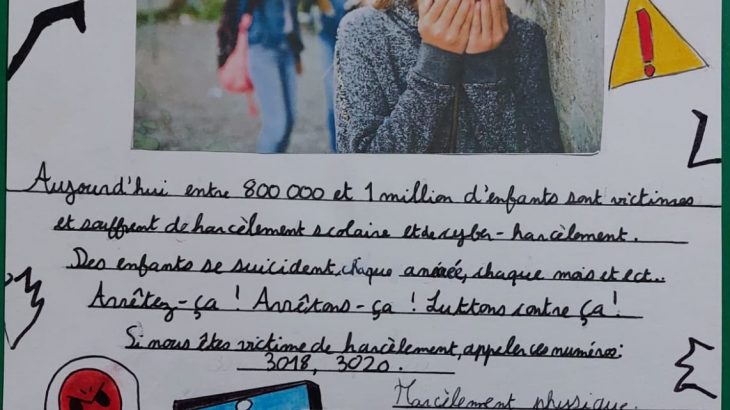 Aujourd'hui entre 800 000 et 1 million d'enfants sont victimes
et souffrent de harcèlement scolaire et de cyber-harcèlement.
Des enfants se suicident, chaque année, chaque mois et ect...
Arrêtez-ça ! Arrêtons-ça ! Luttons contre ça !
Si vous êtes victime de harcèlement, appeler ces numéros:
3018, 3020.
Harcèlement physique